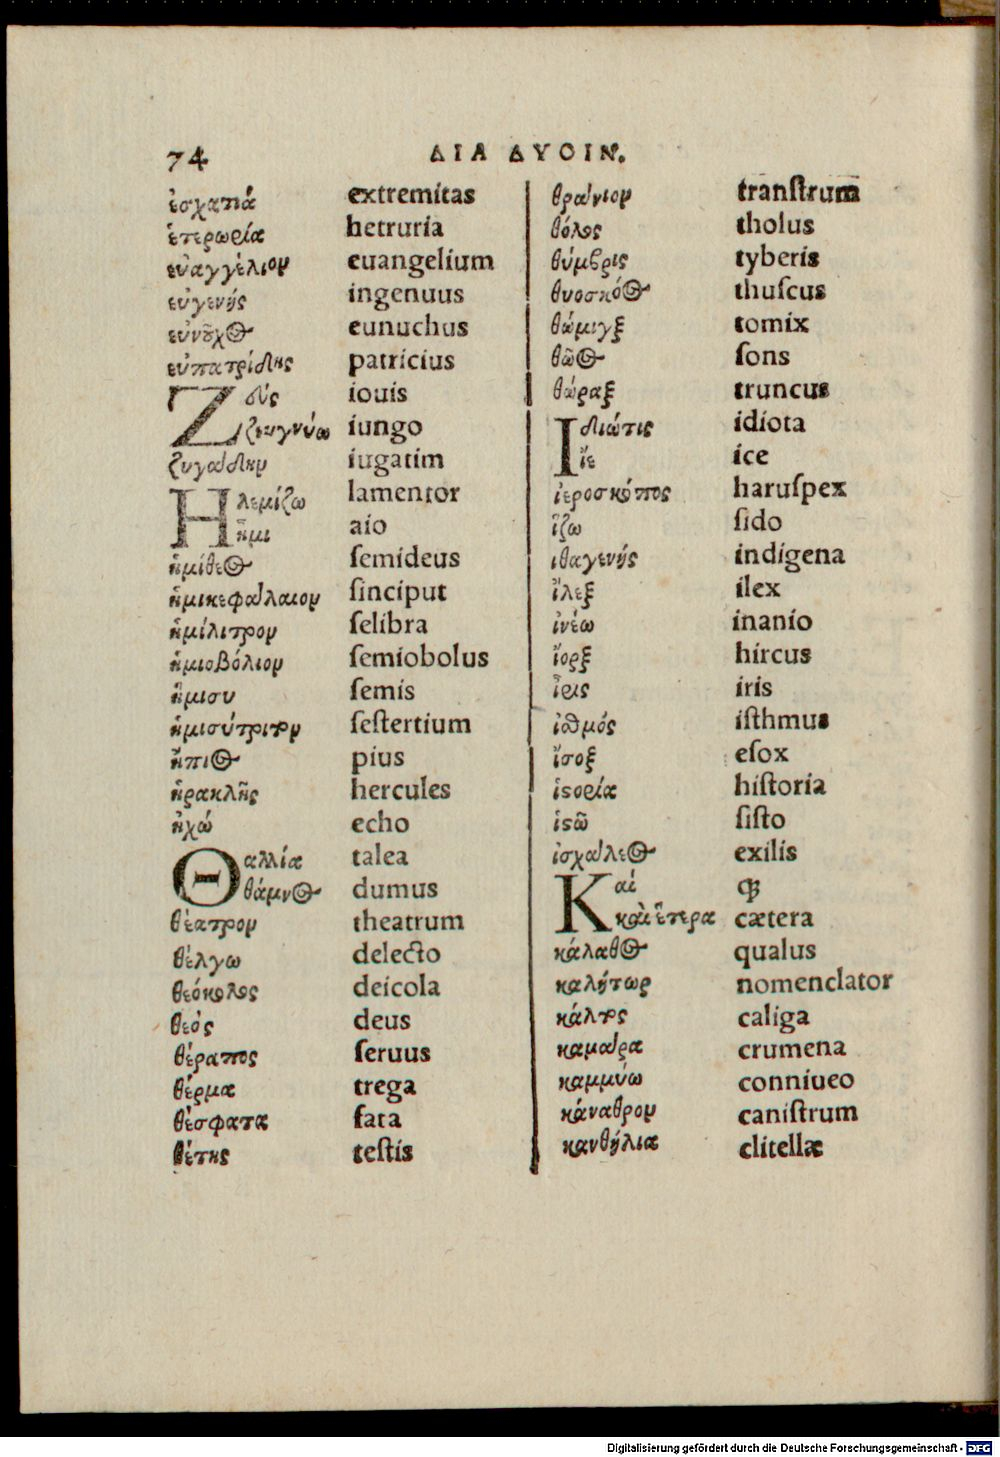 74 ΔΙΑ ΔΥΟΙΝ.
ἐσχατιά extremitas
ἑτερωρία hetruria
εὐαγγέλιον euangelium
εὐγενής ingenuus
εὐνοῦχος eunuchus
εὐπατρίδης patricius
Ζεύς iouis
ζευγνύω iungo
ζυγάδην iugatim
Ηλεμίζω lamentor
ἠμι aio
ἡμίθεος ſemideus
ἡμικεφάλαιον ſinciput
ἡμίλιτρον ſelibra
ἡμιοβόλιον ſemiobolus
ἥμισυ ſemis
ἡμισύτριτον ſeſtertium
ἤπιος pius
ἡρακλῆς hercules
ἠχώ echo
Θαλλία talea
θάμνος dumus
θέατρον theatrum
θέλγω delecto
θεόκολος deicola
θεός deus
θέραπος ſeruus
θέρμα trega
θέσφατα fata
θέτης teſtis
θράνιον tranſtrum
θόλος tholus
θύμβρις tyberis
θυοσκόος thuſcus
θώμιγξ tomix
θῶος ſons
θώραξ truncus
Ιδιώτις idiota
ἴε ice
ἱεροσκόπος haruſpex
ἵζω ſido
ιθαγενής indigena
ἴλεξ ilex
ἰνέω inanio
ἴορξ hircus
ἶρις iris
ἰσθμός iſthmus
ἴσοξ eſox
ἱστορία hiſtoria
ἱστῶ ſiſto
ἰσχαλέος exilis
Καί qꝫ
καὶ ἕτερα cætera
κάλαθος qualus
καλήτωρ nomenclator
κάλτος caliga
καμάρα crumena
καμμύω conniueo
κάναθρον caniſtrum
κανθήλια clitellæ
Digitalisierung gefördert durch die Deutsche Forschungsgemeinschaft - DFG